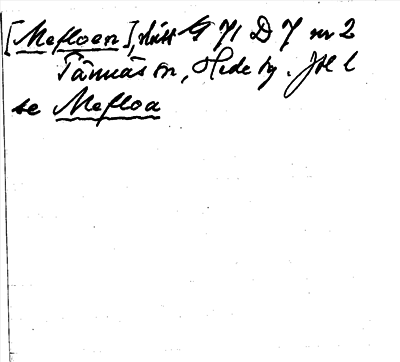 [Mefloen], slått G 71 D 7 nr 2
Tännäs sn, Hede tg. Jtl l
se Mefloa